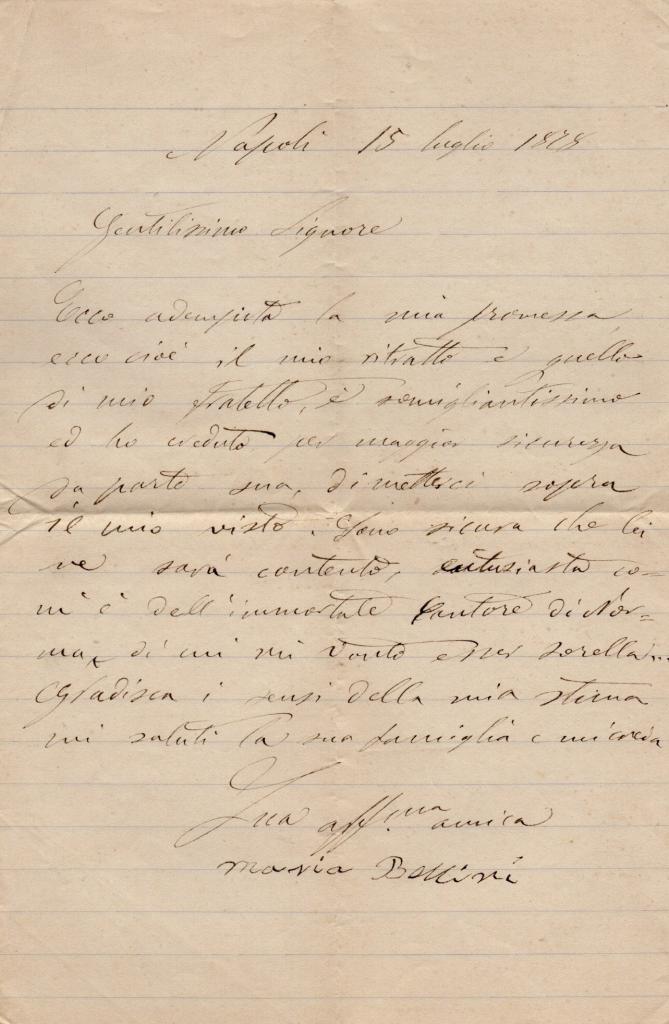 Napoli 15 luglio 1878
Gentilissimo Signore
Ecco adempiuta la mia promessa,
ecco cioè il mio ritratto e quello
di mio fratello, è somigliantissimo
ed ho creduto per maggior sicurezza
da parte sua, di metterci sopra
il mio visto. Sono sicura che lei
ne sarà contento, entusiasta co-
m'è dell'immortale Cantore di Nor-
ma, di cui mi vanto esser sorella...
Gradisca i sensi della mia stima
mi saluti la sua famiglia e mi creda
Sua aff.ma amica
Maria Bellini